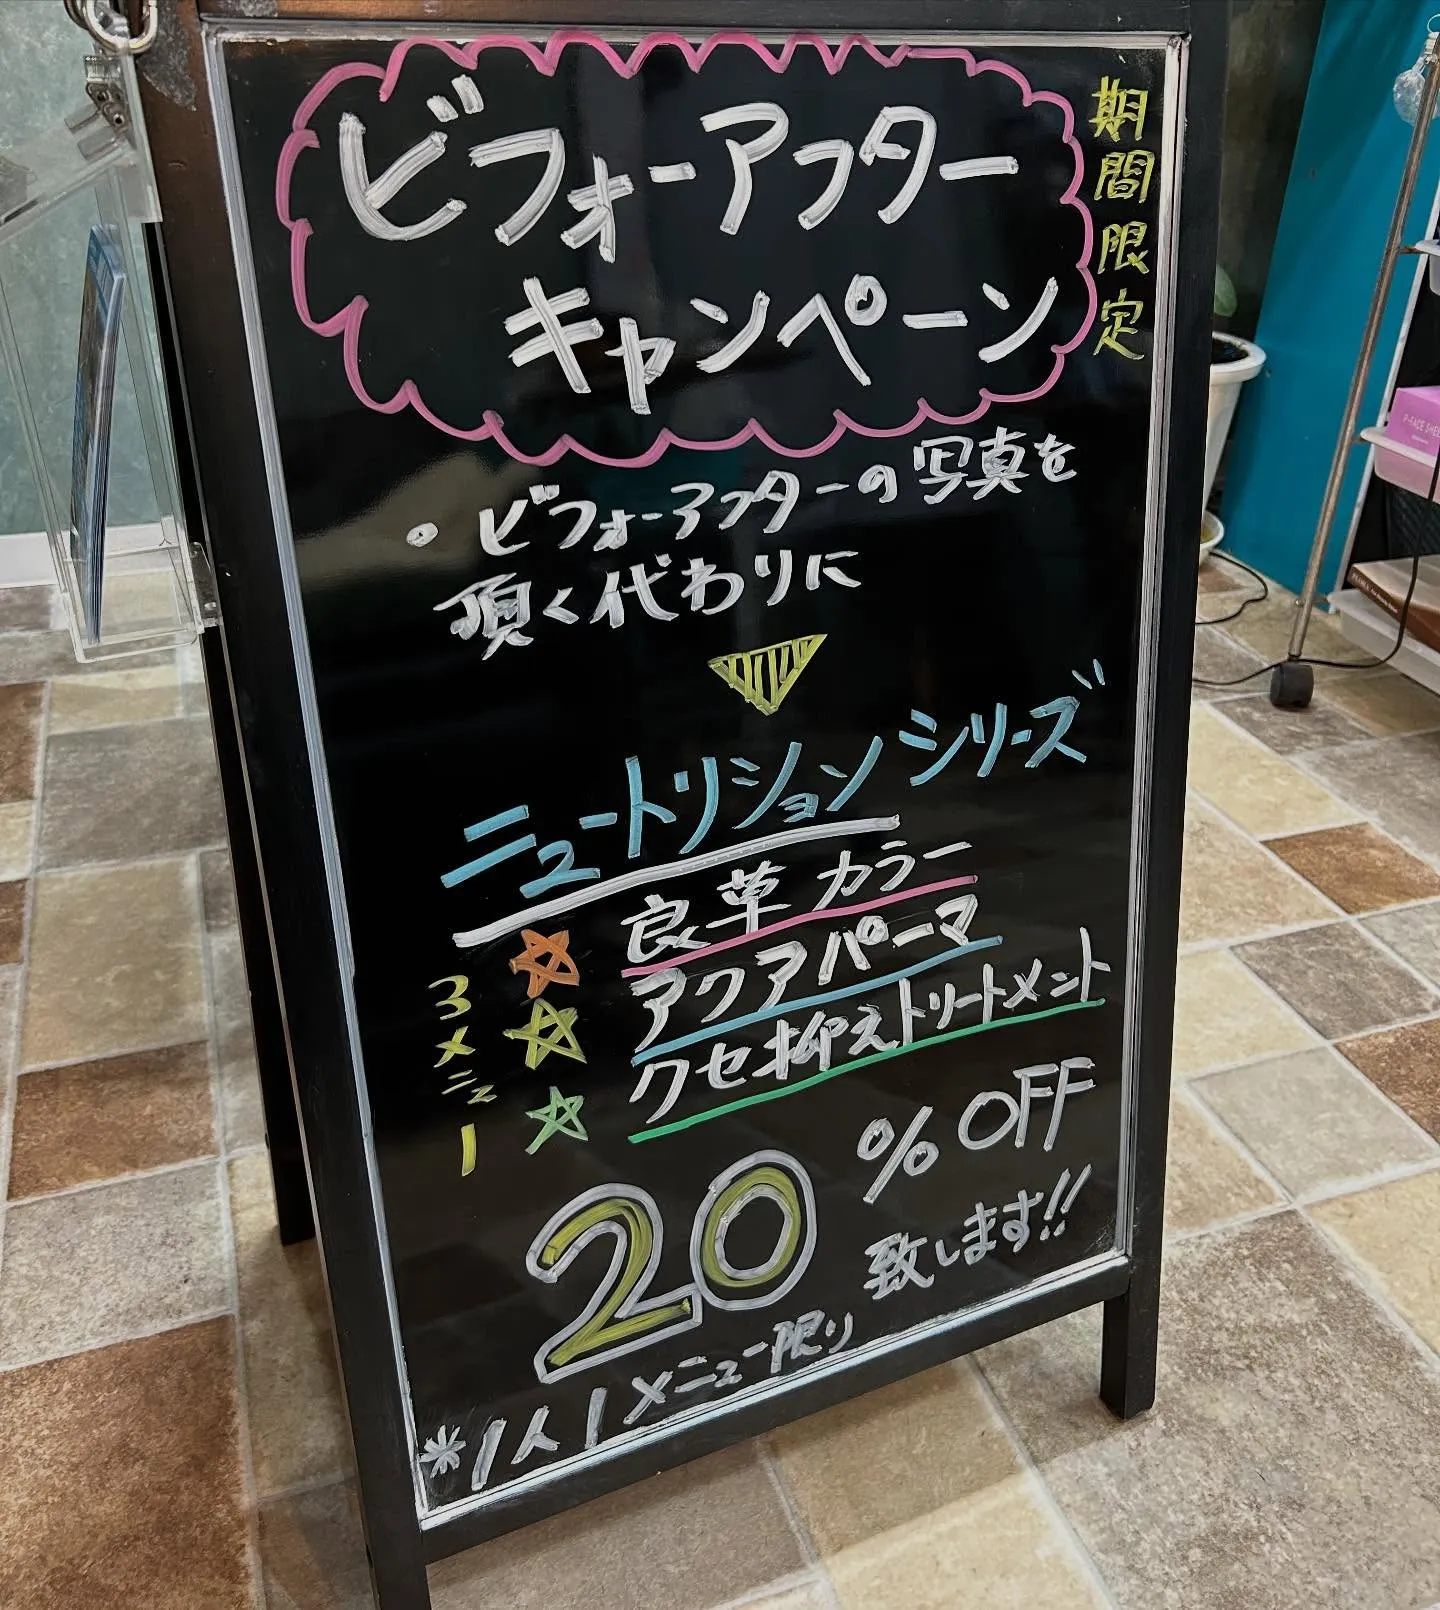 ビフォーアフター
キャンペーン
期間限定
・ビフォーアフターの写真を
頂く代わりに
ニュートリションシリーズ
良草カラー
アクアパーマ
クセ抑えトリートメント
3メニュー
20%OFF
致します!!
*1人1メニュー限り
P-FACE SHEE